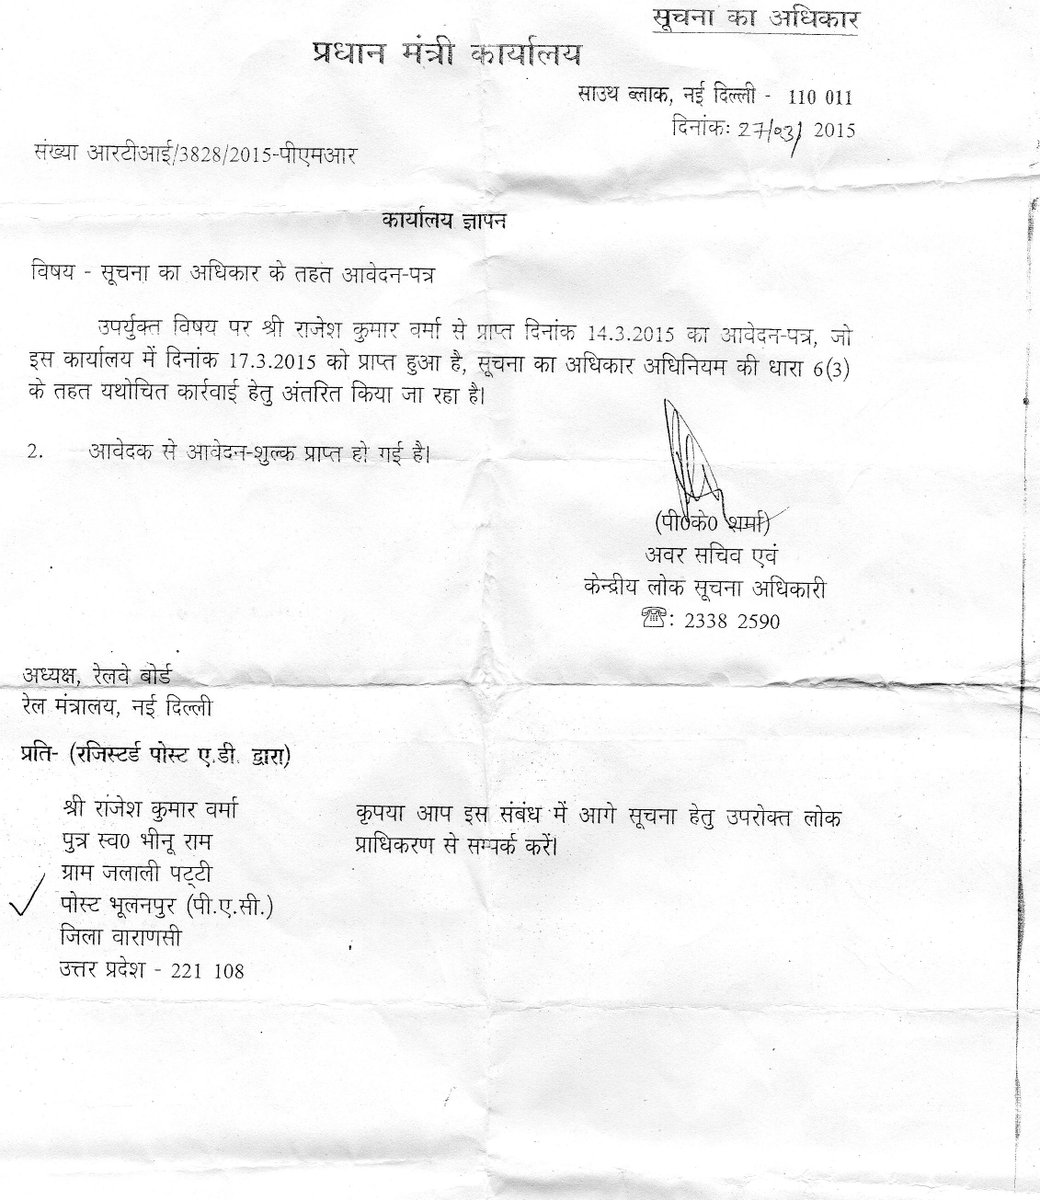 सूचना का अधिकार
प्रधान मंत्री कार्यालय
साउथ ब्लाक, नई दिल्ली - 110 011
दिनांक: 27/03/ 2015
संख्या आरटीआई/3828/2015-पीएमआर
कार्यालय ज्ञापन
विषय - सूचना का अधिकार के तहत आवेदन-पत्र
उपर्युक्त विषय पर श्री राजेश कुमार वर्मा से प्राप्त दिनांक 14.3.2015 का आवेदन-पत्र, जो
इस कार्यालय में दिनांक 17.3.2015 को प्राप्त हुआ है, सूचना का अधिकार अधिनियम की धारा 6(3)
के तहत यथोचित कार्रवाई हेतु अंतरित किया जा रहा है।
2. आवेदक से आवेदन-शुल्क प्राप्त हो गई है।
(पी0के0 शर्मा)
अवर सचिव एवं
केन्द्रीय लोक सूचना अधिकारी
☎: 2338 2590
अध्यक्ष, रेलवे बोर्ड
रेल मंत्रालय, नई दिल्ली
प्रति- (रजिस्टर्ड पोस्ट ए.डी. द्वारा)
श्री राजेश कुमार वर्मा
पुत्र स्व0 भीनू राम
ग्राम जलाली पट्टी
पोस्ट भूलनपुर (पी.ए.सी.)
जिला वाराणसी
उत्तर प्रदेश - 221 108
कृपया आप इस संबंध में आगे सूचना हेतु उपरोक्त लोक
प्राधिकरण से सम्पर्क करें।